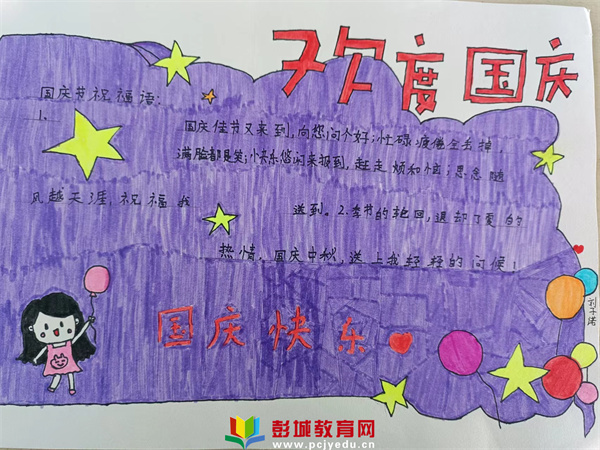 欢度国庆
国庆节祝福语：
1、
国庆佳节又来到，向您问个好；忙碌疲倦全去掉
满脸都是笑；快乐悠闲来报到，赶走烦和恼；思念随
风越天涯，祝福我
送到。2.季节的轮回，退却了夏的
热情，国庆中秋，送上我轻轻的问候！
国庆快乐
刘子诺
彭城教育网
www.pcjyedu.cn